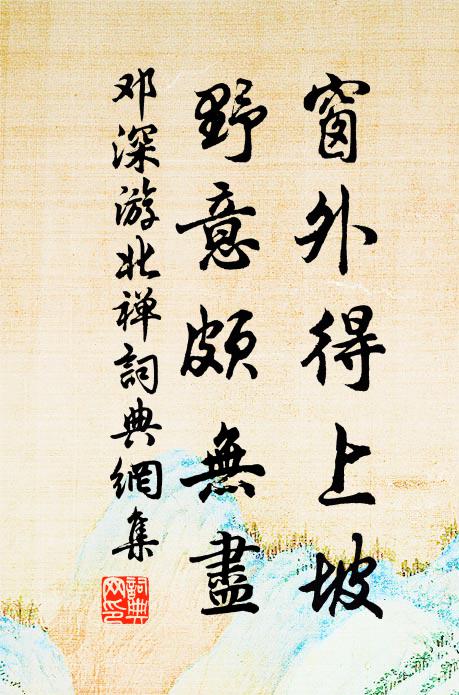 窗外得上坡
野意頗無盡
邓深游北禅詞典網集
詞典